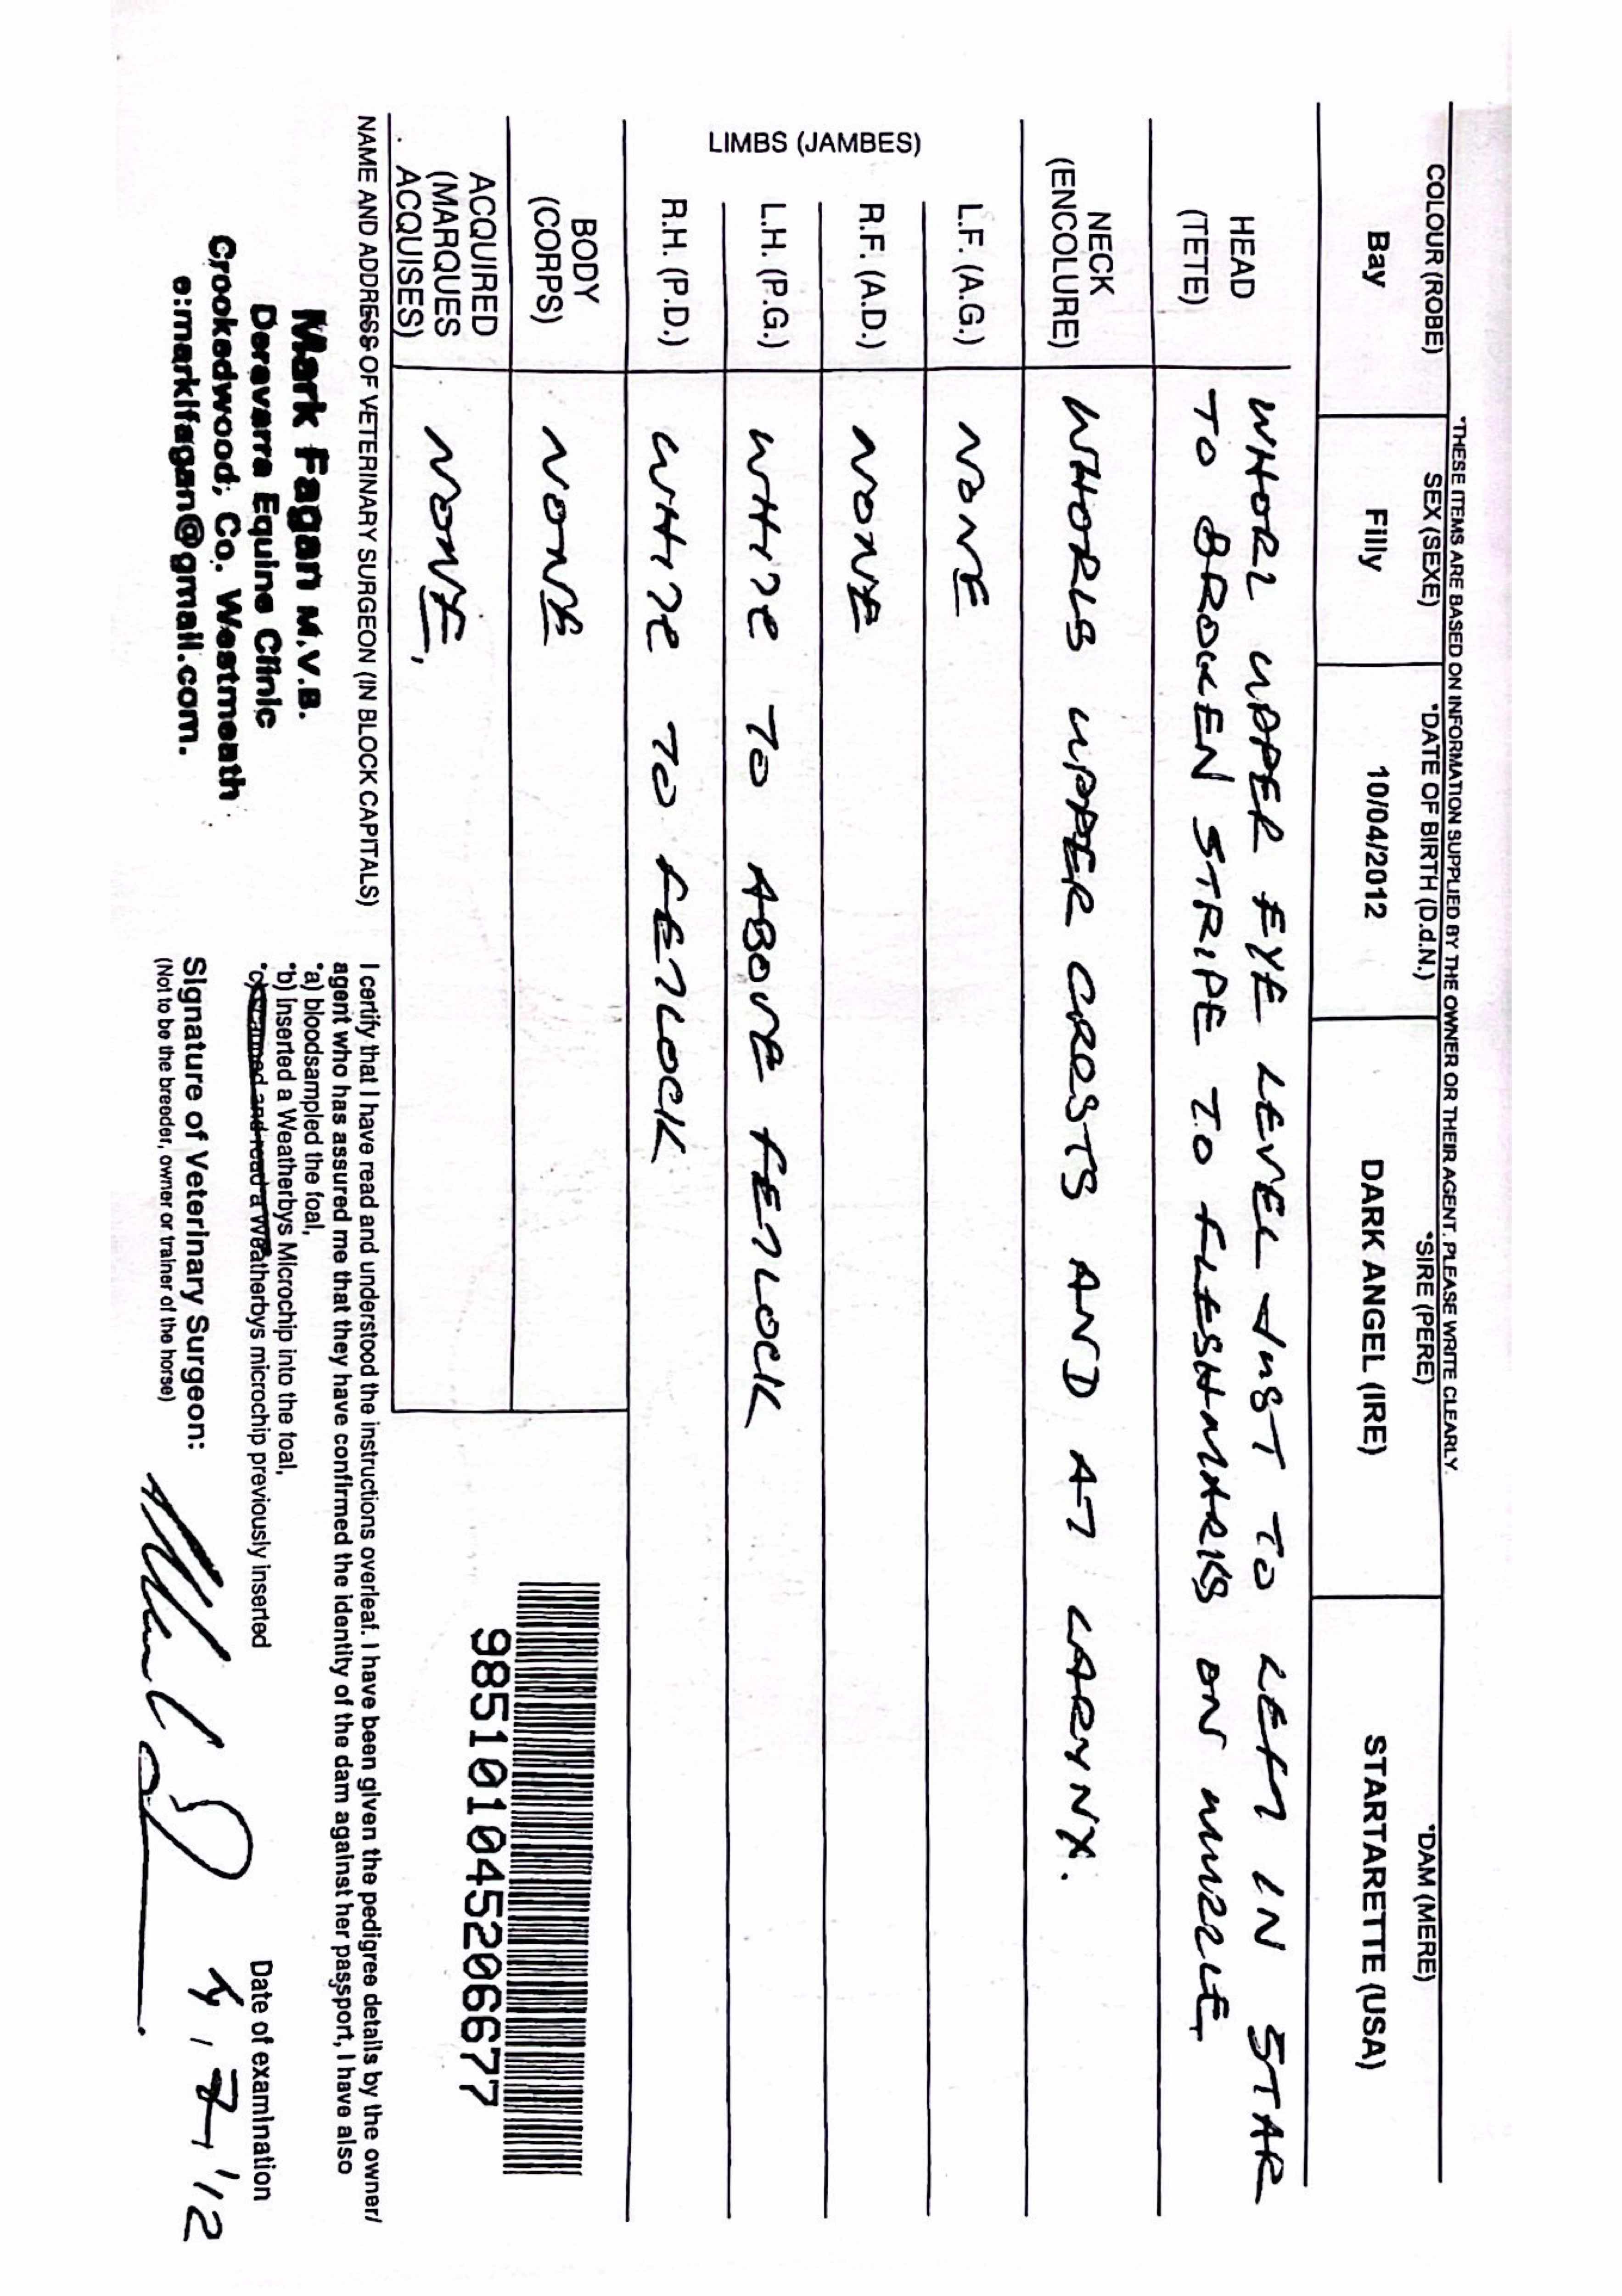 *THESE ITEMS ARE BASED ON INFORMATION SUPPLIED BY THE OWNER OR THEIR AGENT. PLEASE WRITE CLEARLY.
COLOUR (ROBE) SEX (SEXE) *DATE OF BIRTH (D.d.N.) *SIRE (PERE) *DAM (MERE)
Bay Filly 10/04/2012 DARK ANGEL (IRE) STARTARETTE (USA)
HEAD (TETE)
WHORL UPPER EYE LEVEL JUST TO LEFT IN STAR
TO BROKEN STRIPE TO FLESHMARKS ON MUZZLE
NECK (ENCOLURE) WHORLS UPPER CRESTS AND AT LARYNX.
LIMBS (JAMBES)
L.F. (A.G.) NONE
R.F. (A.D.) NONE
L.H. (P.G.) WHITE TO ABOVE FETLOCK
R.H. (P.D.) WHITE TO FETLOCK
BODY (CORPS) NONE
ACQUIRED (MARQUES ACQUISES) NONE,
985101045206677
NAME AND ADDRESS OF VETERINARY SURGEON (IN BLOCK CAPITALS)
Mark Fagan M.V.B.
Deravarra Equine Clinic
Crookedwood, Co. Westmeath
e:marklfagan@gmail.com.
I certify that I have read and understood the instructions overleaf. I have been given the pedigree details by the owner/
agent who has assured me that they have confirmed the identity of the dam against her passport, I have also
*a) bloodsampled the foal,
*b) inserted a Weatherbys Microchip into the foal,
*c) scanned and read a Weatherbys microchip previously inserted
Signature of Veterinary Surgeon:
(Not to be the breeder, owner or trainer of the horse)
Date of examination
4,7,'12